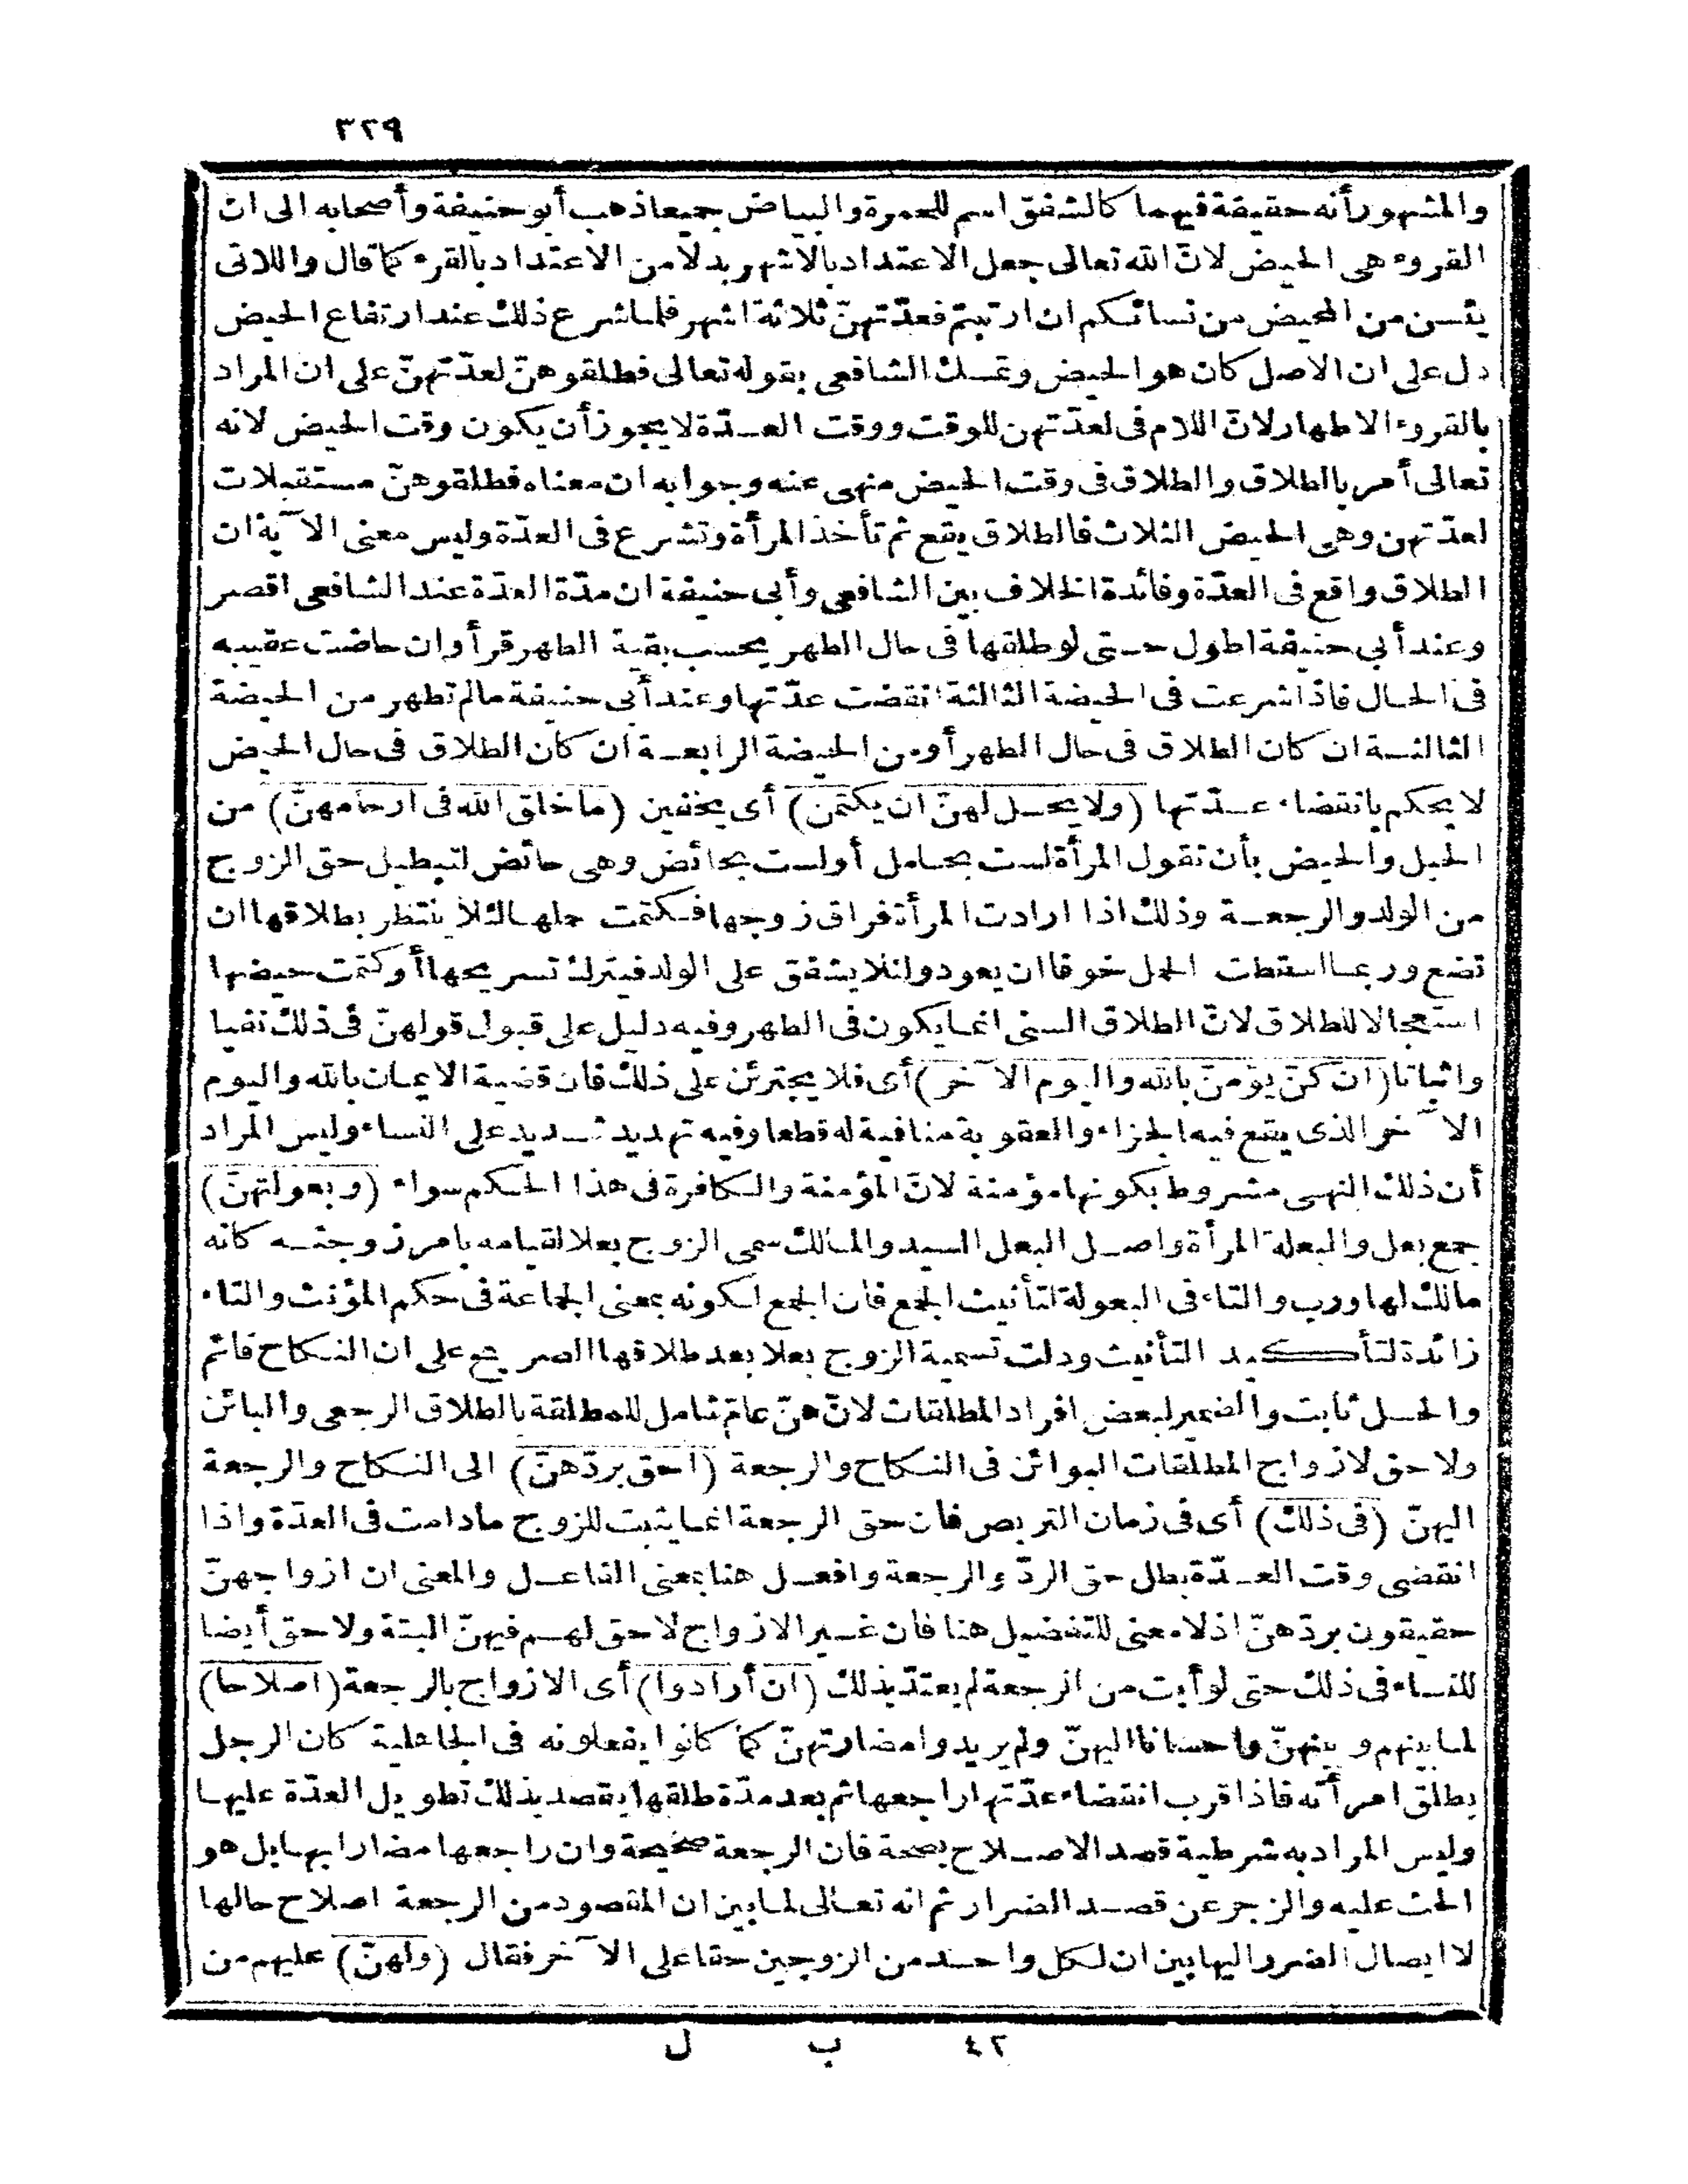 ٣٢٩
والمشهور أنه حقيقة فيهما كالشفق اسم للحمرة والبياض جميعا ذهب أبو حنيفة وأصحابه الى ان
القروء هى الحيض لانّ الله تعالى جعل الاعتداد بالاشهر بدلا من الاعتداد بالقرء كما قال واللائى
يئسن من المحيض من نسائكم ان ارتبتم فعدّتهنّ ثلاثة اشهر فلما شرع ذلك عند ارتفاع الحيض
دل على ان الاصل كان هو الحيض وتمسك الشافعى بقوله تعالى فطلقوهنّ لعدّتهنّ على ان المراد
بالقروء الاطهار لانّ اللام فى لعدّتهن للوقت ووقت العدّة لا يجوز أن يكون وقت الحيض لانه
تعالى أمر بالطلاق والطلاق فى وقت الحيض منهى عنه وجوابه ان معناه فطلقوهنّ مستقبلات
لعدّتهن وهى الحيض الثلاث فالطلاق يقع ثم تأخذ المرأة وتشرع فى العدّة وليس معنى الآية ان
الطلاق واقع فى العدّة وفائدة الخلاف بين الشافعى وأبى حنيفة ان مدّة العدّة عند الشافعى اقصر
وعند أبى حنيفة اطول حتى لو طلقها فى حال الطهر يحسب بقية الطهر قرأ وان حاضت عقيبه
فى الحال فاذا شرعت فى الحيضة الثالثة انقضت عدّتها وعند أبى حنيفة مالم تطهر من الحيضة
الثالثة ان كان الطلاق فى حال الطهر أو من الحيضة الرابعة ان كان الطلاق فى حال الحيض
لا يحكم بانقضاء عدّتها (ولا يحل لهنّ ان يكتمن) أى يخفين (ما خلق الله فى ارحامهنّ) من
الحبل والحيض بأن تقول المرأة لست بحامل أو لست بحائض وهى حائض لتبطيل حق الزوج
من الولد والرجعة وذلك اذا ارادت المرأة فراق زوجها فكتمت حملها لئلا ينتظر بطلاقها ان
تضع وربما اسقطت الحمل خوفا ان يعود ولئلا يشفق على الولد فيترك تسريحها أو كتمت حيضها
استعجالا للطلاق لانّ الطلاق السنى انما يكون فى الطهر وفيه دليل على قبول قولهنّ فى ذلك نفيا
واثباتا (ان كنّ يؤمنّ بالله واليوم الآخر) أى فلا يجترئن على ذلك فان قضية الايمان بالله واليوم
الآخر الذى يقع فيه الجزاء والعقوبة منافية له قطعا وفيه تهديد شديد على النساء وليس المراد
أن ذلك النهى مشروط بكونها مؤمنة لانّ المؤمنة والكافرة فى هذا الحكم سواء (وبعولتهنّ)
جمع بعل والبعلة المرأة واصل البعل السيد والمالك سمى الزوج بعلا لقيامه بامر زوجته كانه
مالك لها ورب والتاء فى البعولة لتأنيث الجمع فان الجمع لكونه بمعنى الجماعة فى حكم المؤنث والتاء
زائدة لتأكيد التأنيث ودلت تسمية الزوج بعلا بعد طلاقها الصريح على ان النكاح قائم
والحل ثابت والضمير لبعض افراد المطلقات لانّ هنّ عامّ شامل للمطلقة بالطلاق الرجعى والبائن
ولا حق لازواج المطلقات البوائن فى النكاح والرجعة (احق بردّهنّ) الى النكاح والرجعة
اليهنّ (فى ذلك) أى فى زمان التربص فان حق الرجعة انما يثبت للزوج مادامت فى العدّة واذا
انقضى وقت العدّة بطل حق الردّ والرجعة وافعل هنا بمعنى الفاعل والمعنى ان ازواجهنّ
حقيقون بردّهنّ اذ لا معنى للتفضيل هنا فان غير الازواج لا حق لهم فيهنّ البتة ولا حق أيضا
للنساء فى ذلك حتى لو أبت من الرجعة لم يعتدّ بذلك (ان أرادوا) أى الازواج بالرجعة (اصلاحا)
لما بينهم وبينهنّ واحسانا اليهنّ ولم يريدوا مضارتهنّ كما كانوا يفعلونه فى الجاهلية كان الرجل
يطلق امرأته فاذا قرب انقضاء عدّتها راجعها ثم بعد مدّة طلقها يقصد بذلك تطويل العدّة عليها
وليس المراد به شرطية قصد الاصلاح بصحة فان الرجعة صحيحة وان راجعها مضارا بها بل هو
الحث عليه والزجر عن قصد الضرار ثم انه تعالى لما بين ان المقصود من الرجعة اصلاح حالها
لا ايصال الضرر اليها بين ان لكل واحد من الزوجين حقا على الآخر فقال (ولهنّ) عليهم من
٤٢ ب ل